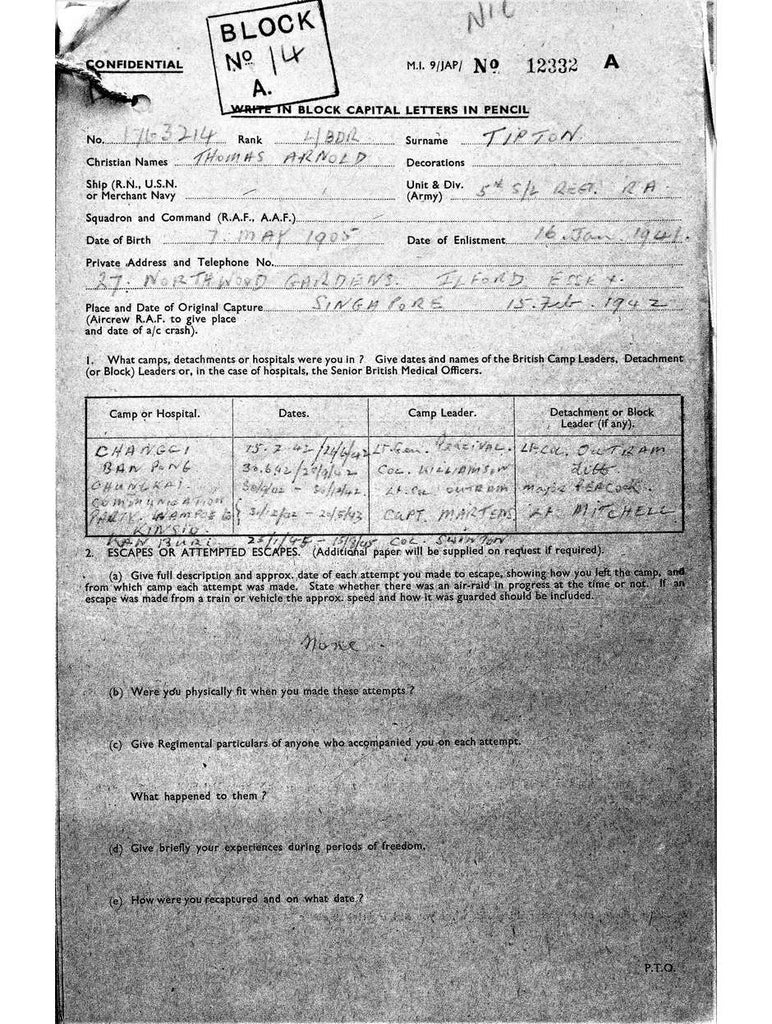 NIL
BLOCK
No 14
A.
CONFIDENTIAL
M.I. 9/JAP/ No 12332 A
WRITE IN BLOCK CAPITAL LETTERS IN PENCIL
No. 1763214 Rank L/BDR Surname TIPTON
Christian Names THOMAS ARNOLD Decorations
Ship (R.N., U.S.N. or Merchant Navy - - Unit & Div. (Army) 5th S/L REGT. RA
Squadron and Command (R.A.F., A.A.F.) -
Date of Birth 7. MAY 1905 Date of Enlistment 16 Jan. 1941.
Private Address and Telephone No.
27. NORTHWOOD GARDENS. ILFORD ESSEX.
Place and Date of Original Capture SINGAPORE 15.Feb.1942
(Aircrew R.A.F. to give place
and date of a/c crash).
1. What camps, detachments or hospitals were you in ? Give dates and names of the British Camp Leaders, Detachment
(or Block) Leaders or, in the case of hospitals, the Senior British Medical Officers.
Camp or Hospital. Dates. Camp Leader. Detachment or Block
Leader (if any).
CHANGGI 15.2.42/24/6/42 LT. Gen. PERCIVAL. Lt.COL. OUTRAM
BAN PONG COL. WILLIAMSON ditto
CHUNGKAI. Lt.COL OUTRAM Major PEACOCK.
COMMUNICATION
PARTY. WAMPO & 31/12/42 - 20/5/43 CAPT. MARTENS Lt. MITCHELL
KINSIO
KAN BURI COL. SWINTON
2. ESCAPES OR ATTEMPTED ESCAPES. (Additional paper will be supplied on request if required).
(a) Give full description and approx. date of each attempt you made to escape, showing how you left the camp, and
from which camp each attempt was made. State whether there was an air-raid in progress at the time or not. If an
escape was made from a train or vehicle the approx. speed and how it was guarded should be included.
None.
(b) Were you physically fit when you made these attempts ?
(c) Give Regimental particulars of anyone who accompanied you on each attempt.
What happened to them ?
(d) Give briefly your experiences during periods of freedom.
(e) How were you recaptured and on what date ?
P.T.O.